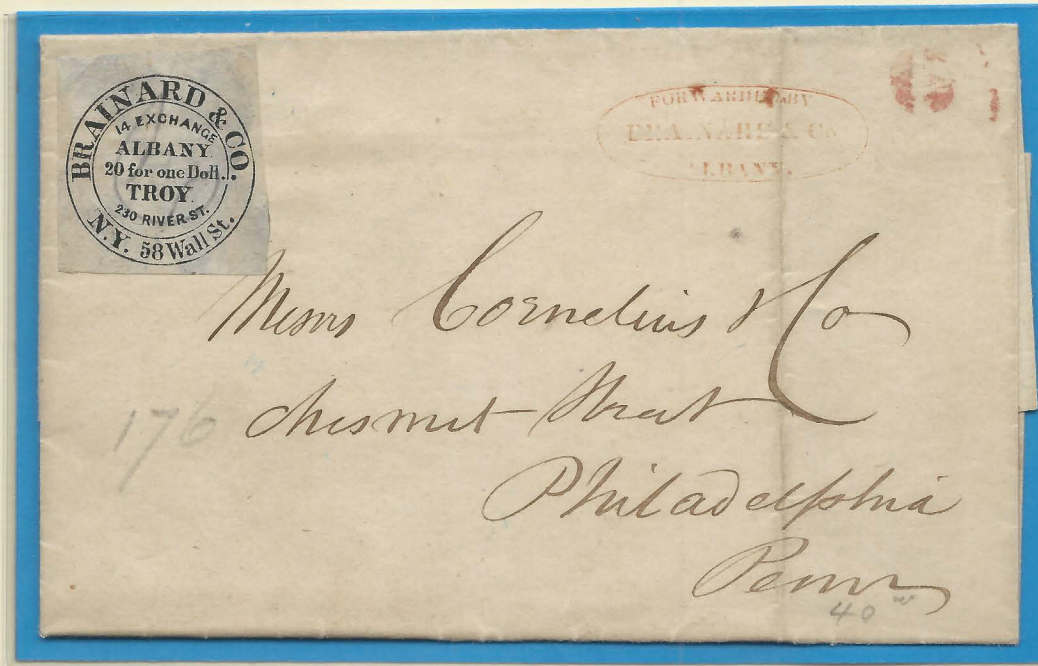 BRAINARD & CO.
14 EXCHANGE
ALBANY.
20 for one Doll..
TROY.
230 RIVER ST.
N.Y. 58 Wall St.
FORWARDED BY
BRAINARD & Co
ALBANY.
Messrs Cornelius & Co
Chesnut Street
Philadelphia
Penn
176
40